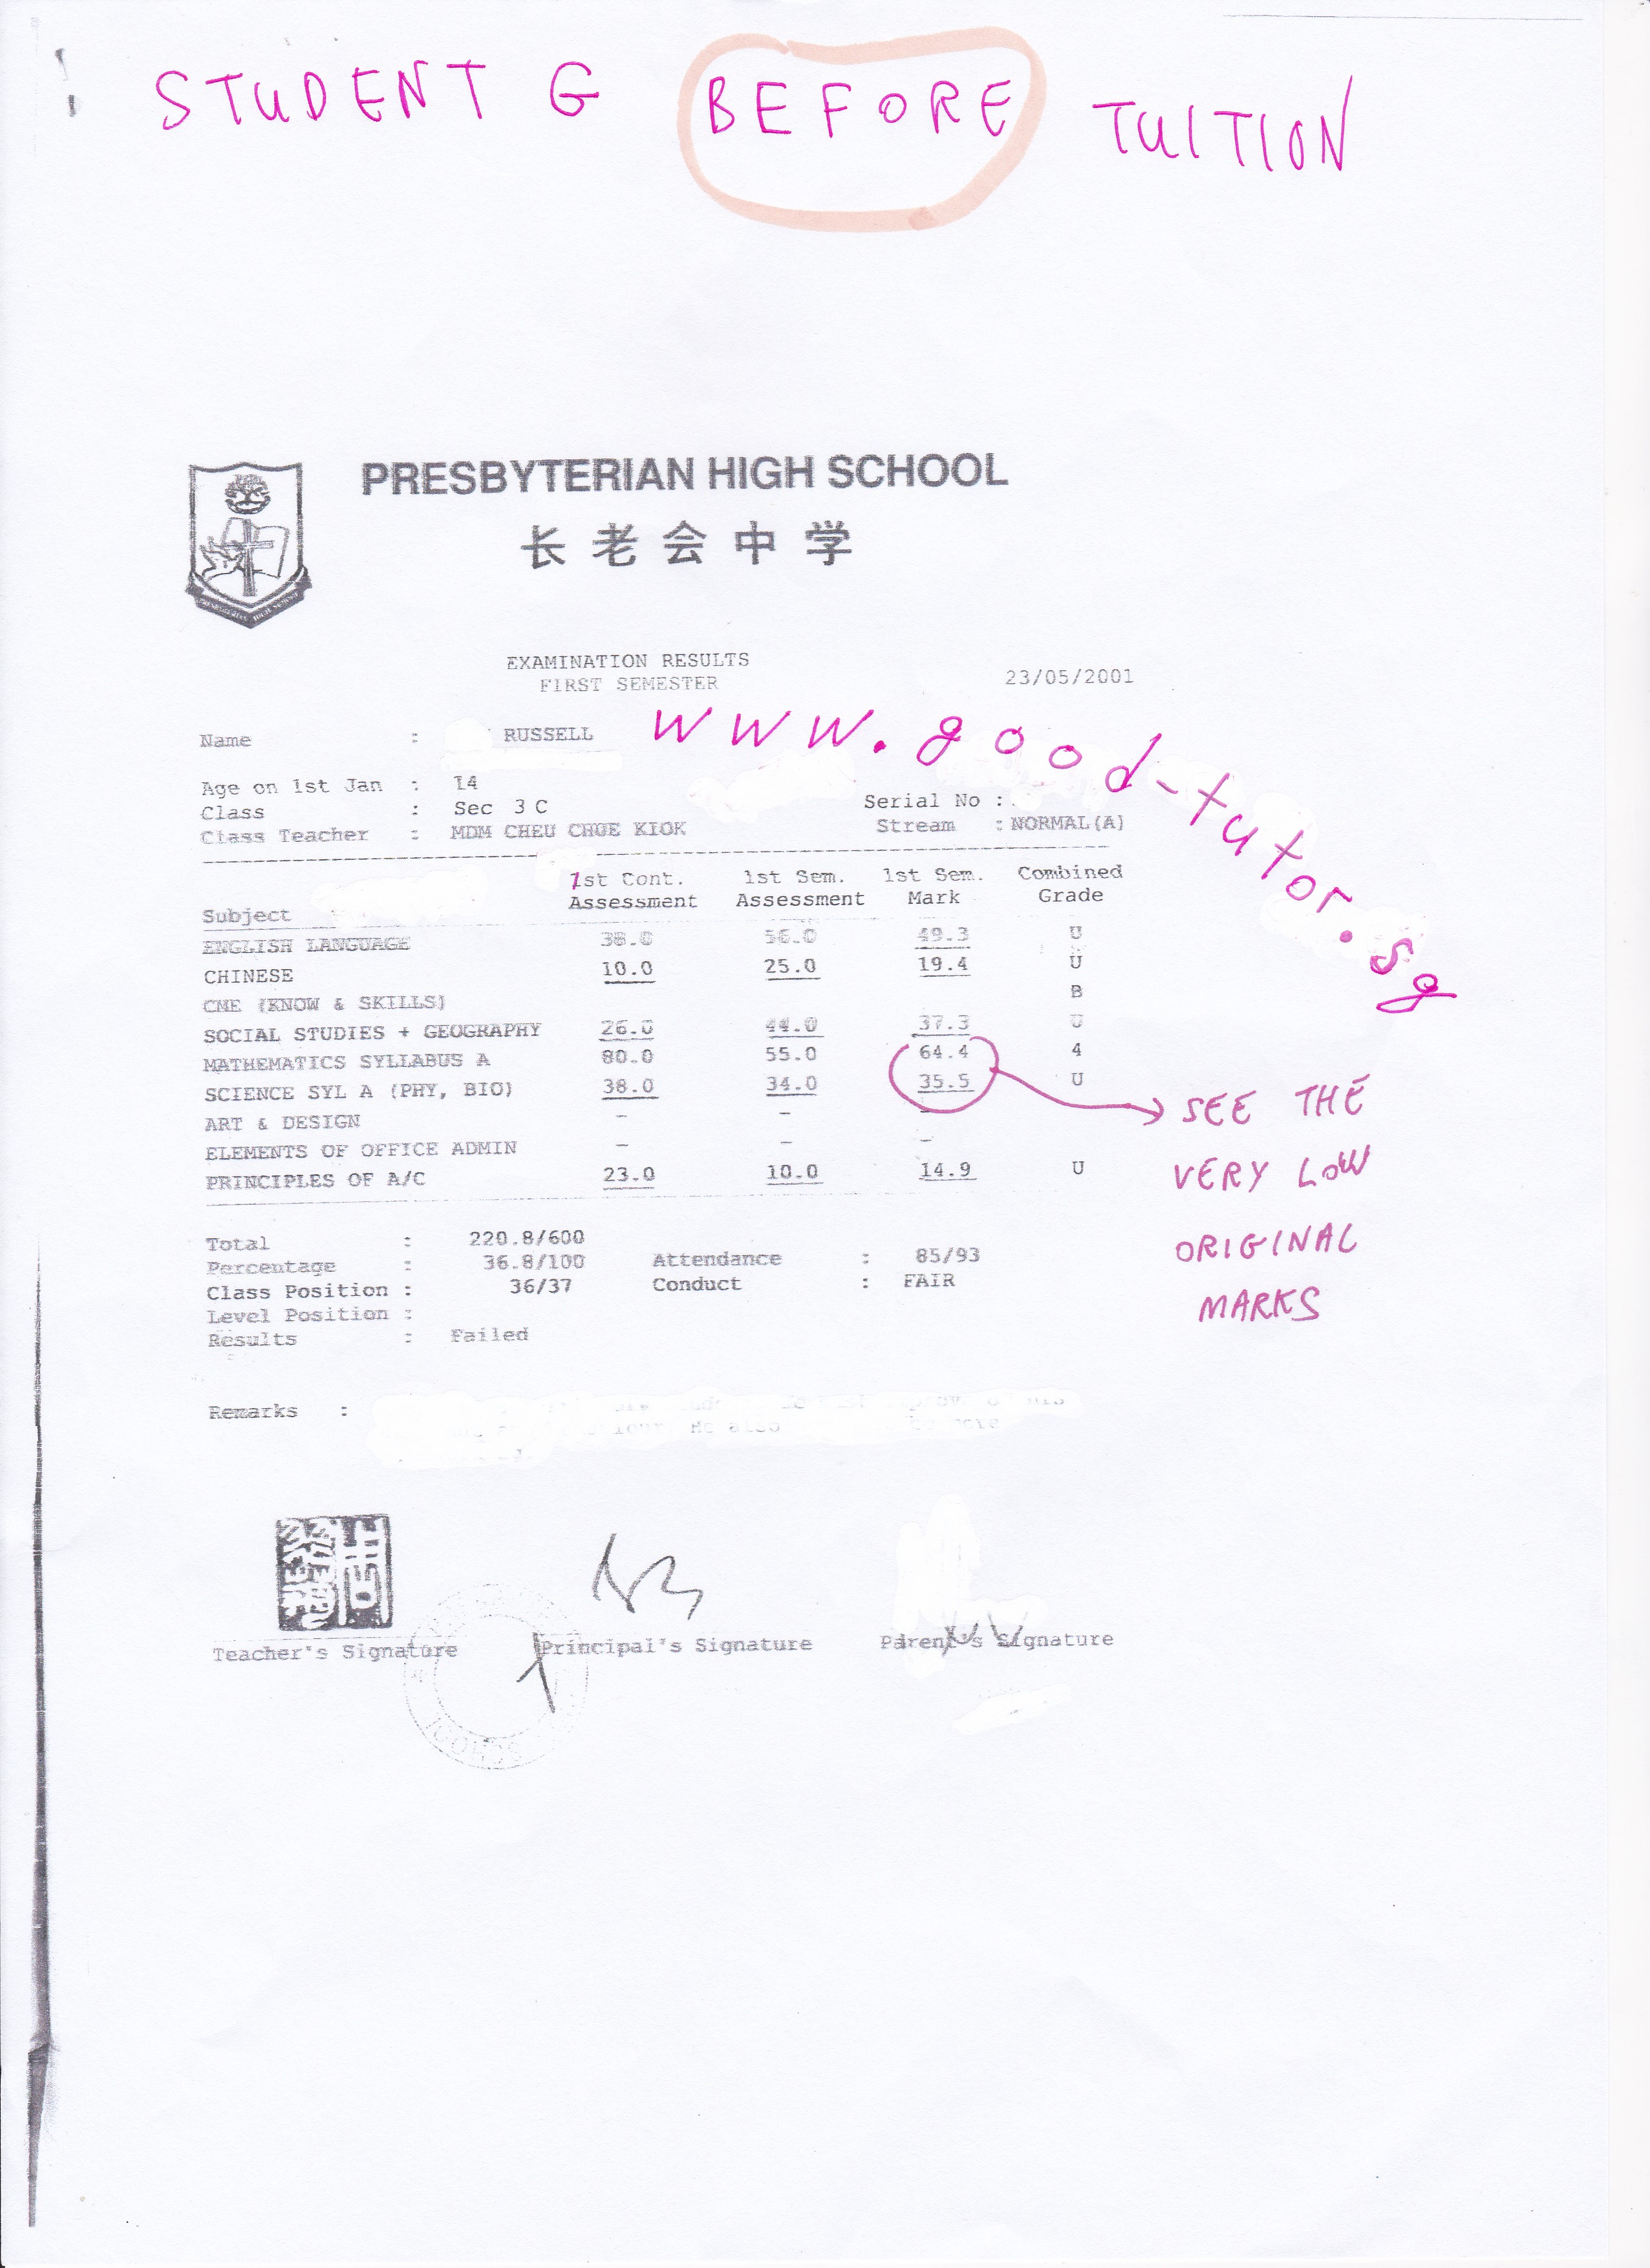 STUDENT G BEFORE TUITION
PRESBYTERIAN HIGH SCHOOL
长老会中学
PRESBYTERIAN HIGH SCHOOL
EXAMINATION RESULTS
FIRST SEMESTER
23/05/2001
Name : RUSSELL
www.good-tutor.sg
Age on 1st Jan : 14
Class : Sec 3 C
Serial No :
Class Teacher : MDM CHEU CHOE KIOK
Stream : NORMAL(A)
Subject 1st Cont. Assessment 1st Sem. Assessment 1st Sem. Mark Combined Grade
ENGLISH LANGUAGE 38.0 56.0 49.3 U
CHINESE 10.0 25.0 19.4 U
CME (KNOW & SKILLS) B
SOCIAL STUDIES + GEOGRAPHY 26.0 44.0 37.3 U
MATHEMATICS SYLLABUS A 80.0 55.0 64.4 4
SCIENCE SYL A (PHY, BIO) 38.0 34.0 35.5 U
ART & DESIGN - - -
ELEMENTS OF OFFICE ADMIN - - -
PRINCIPLES OF A/C 23.0 10.0 14.9 U
SEE THE
VERY LOW
ORIGINAL
MARKS
Total : 220.8/600
Percentage : 36.8/100 Attendance : 85/93
Class Position : 36/37 Conduct : FAIR
Level Position :
Results : Failed
Remarks :
Teacher's Signature Principal's Signature Parent's Signature
SCHOOL